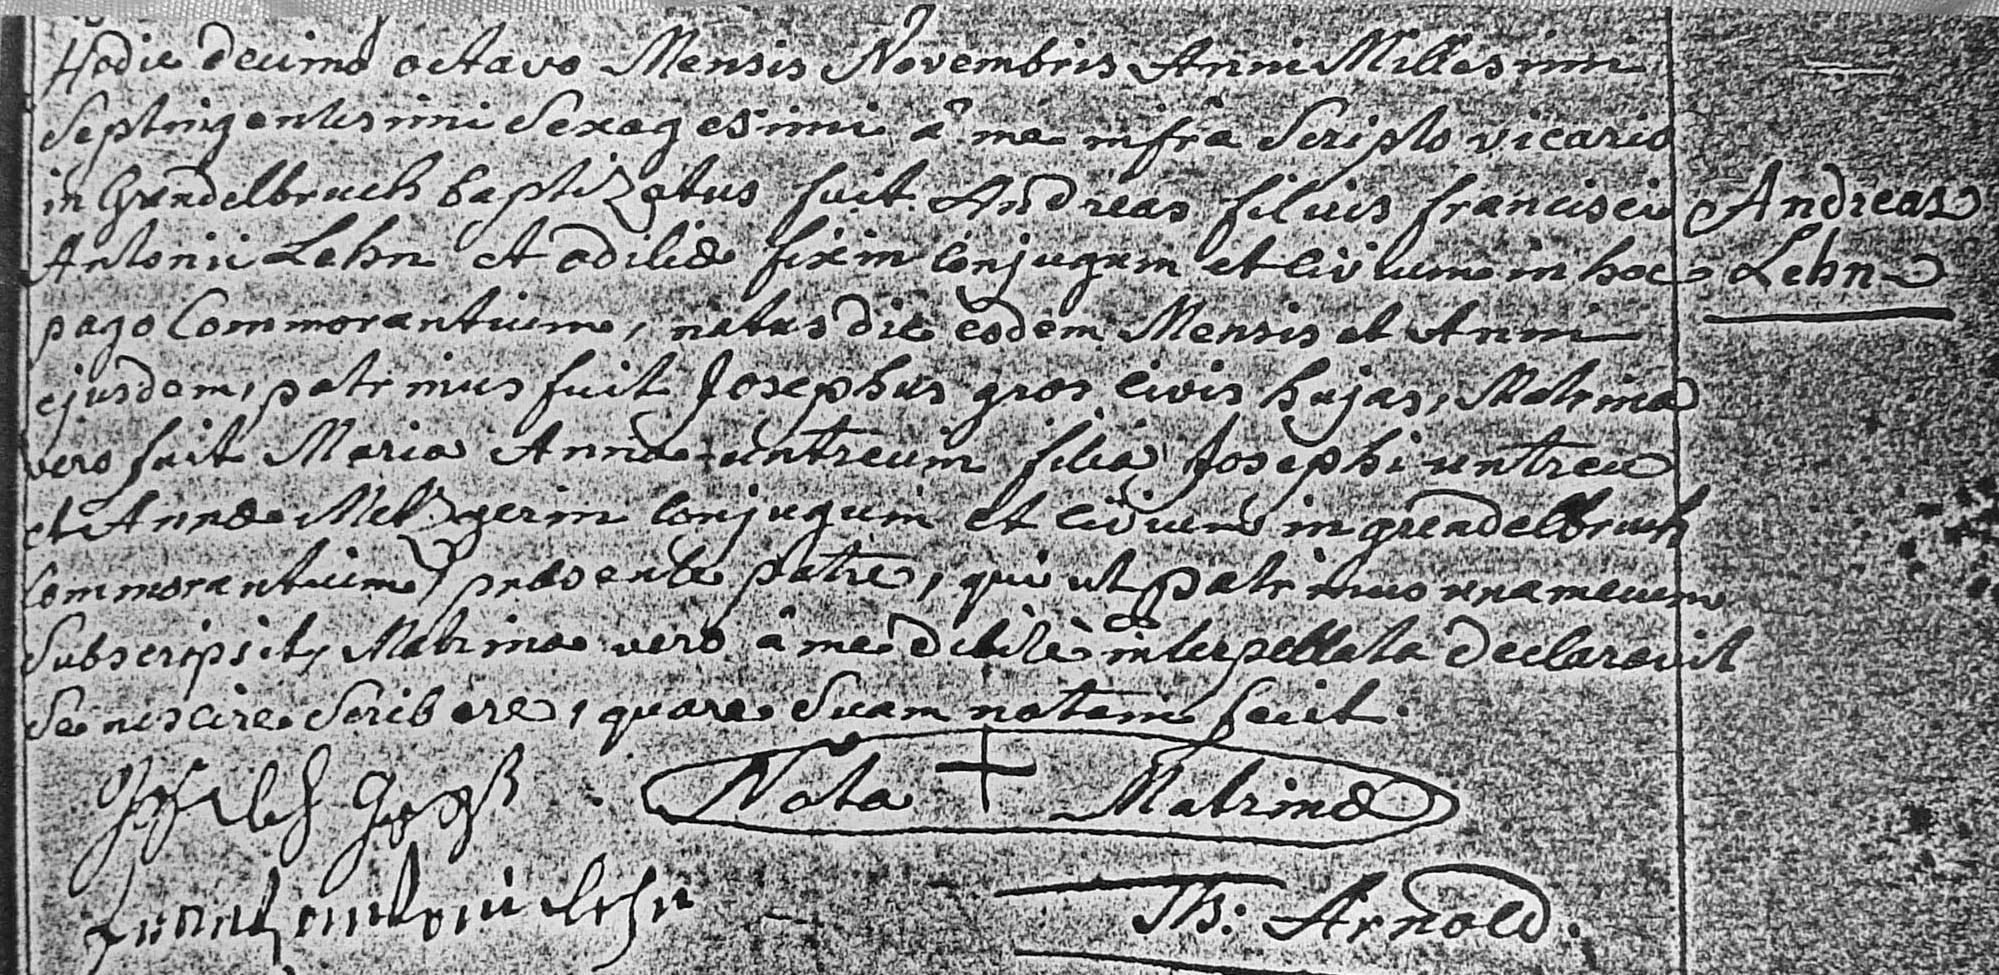 Hodie decimo octavo Mensis Novembris Anni Millesimi
Septingentesimi Sexagesimi à me infra Scripto vicario
in Grendelbruch baptizatus fuit Andreas filius francisci
Andreas
Antonii Lehn et odiliæ firxin Conjugum et Civium in hoc
Lehn
pago Commorantium, natus die eodem Mensis et Anni
ejusdem, patrinus fuit Josephus gros civis hujas, Matrina
vero fuit Maria Anna untreuin filia Josephi untreu
et Annæ Metzgerin Conjugum et civium in grendelbruch
Commorantium, præsente patre, qui ut patrinus una mecum
Subscripsit, Matrina vero à me debitè interpellata declaravit
Se nescire Scribere, quare Suam notam fecit.
Joseph Groß
Nota + Matrinæ
frantz antoni lehn
Th: Arnold.